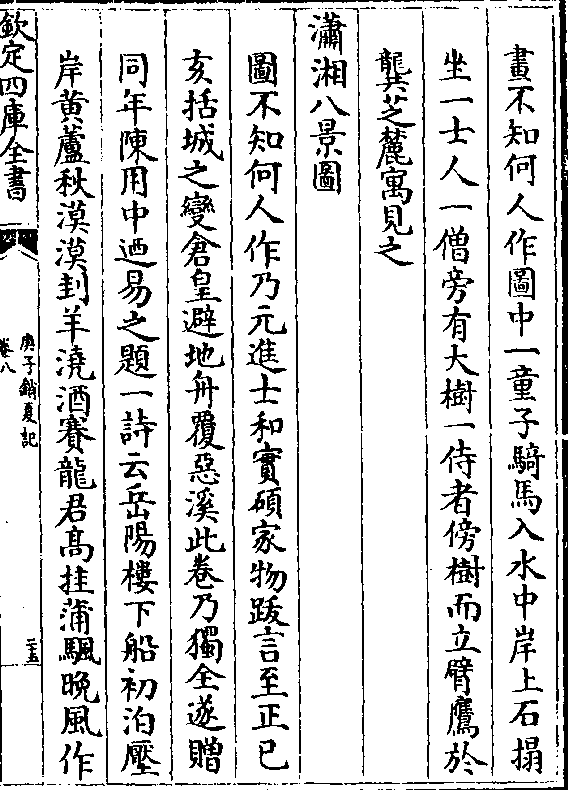 畫不知何人作圖中一童子騎馬入水中岸上石搨
坐一士人一僧旁有大樹一侍者傍樹而立臂鷹於
龔芝麓寓見之
瀟湘八景圖
圖不知何人作乃元進士和實碩家物䟦言至正已
亥括城之變倉皇避地舟覆惡溪此卷乃獨全遂贈
同年陳用中迺易之題一詩云岳陽樓下船初泊壓
岸黄蘆秋漠漠刲羊澆酒賽龍君髙挂蒲颿晚風作
欽定四庫全書
庚子銷夏記
卷八
二五